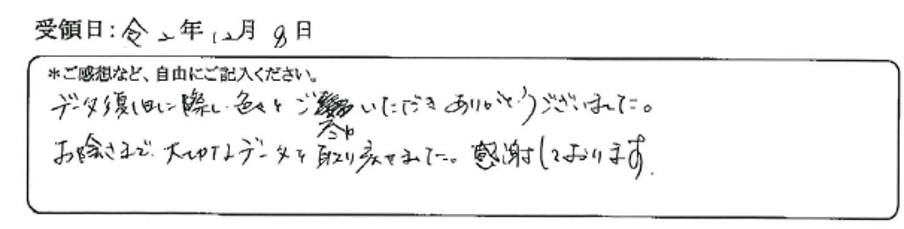 受領日：令2年12月8日
＊ご感想など、自由にご記入ください。
データ復旧に際し、色々とご尽力いただきありがとうございました。
お陰さまで、大切なデータを取り戻せました。感謝しております。